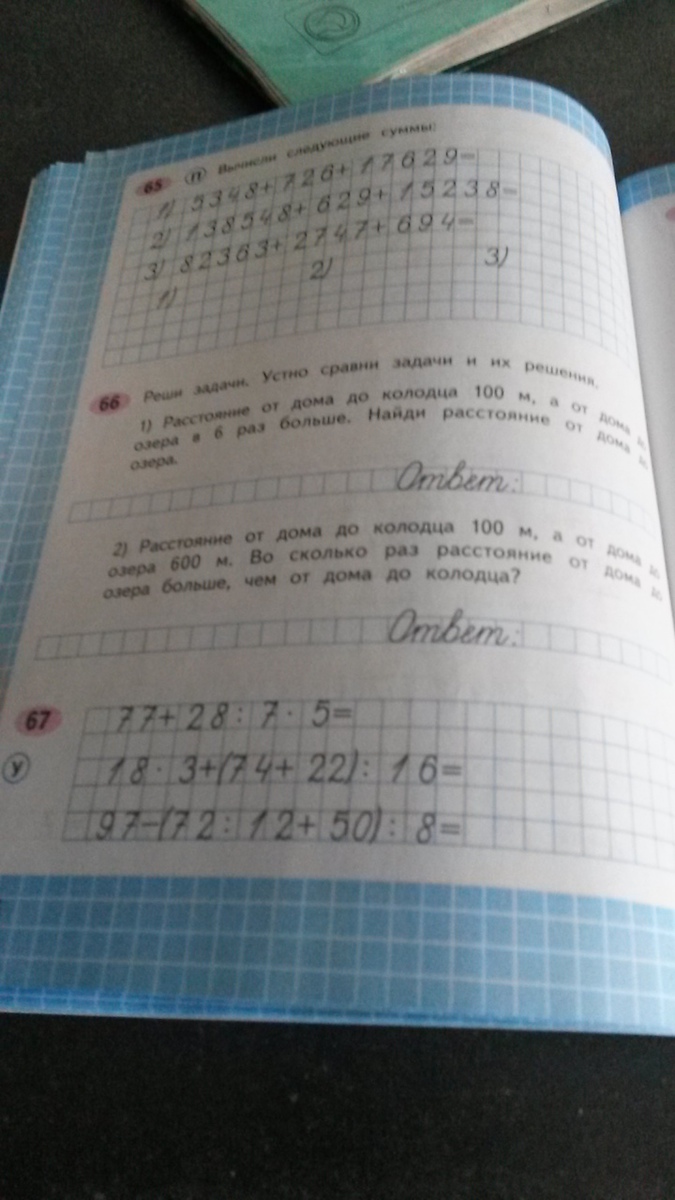 65 П Вычисли следующие суммы:
1) 5348+726+17629=
2) 138548+629+15238=
3) 82363+2747+694=
1) 2) 3)
66 Реши задачи. Устно сравни задачи и их решения.
1) Расстояние от дома до колодца 100 м, а от дома до
озера в 6 раз больше. Найди расстояние от дома до
озера.
Ответ:
2) Расстояние от дома до колодца 100 м, а от дома до
озера 600 м. Во сколько раз расстояние от дома до
озера больше, чем от дома до колодца?
Ответ:
67 77+28:7·5=
У 18·3+(74+22):16=
97-(72:12+50):8=